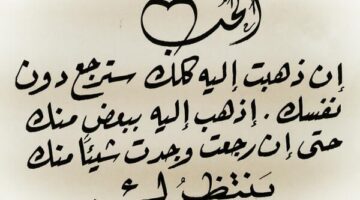 الحب
إن ذهبت إليه كلك سترجع دون
نفسك . إذهب إليه ببعضٍ منك
حتى إن رجعت وجدت شيئاً منك
ينتظرُ